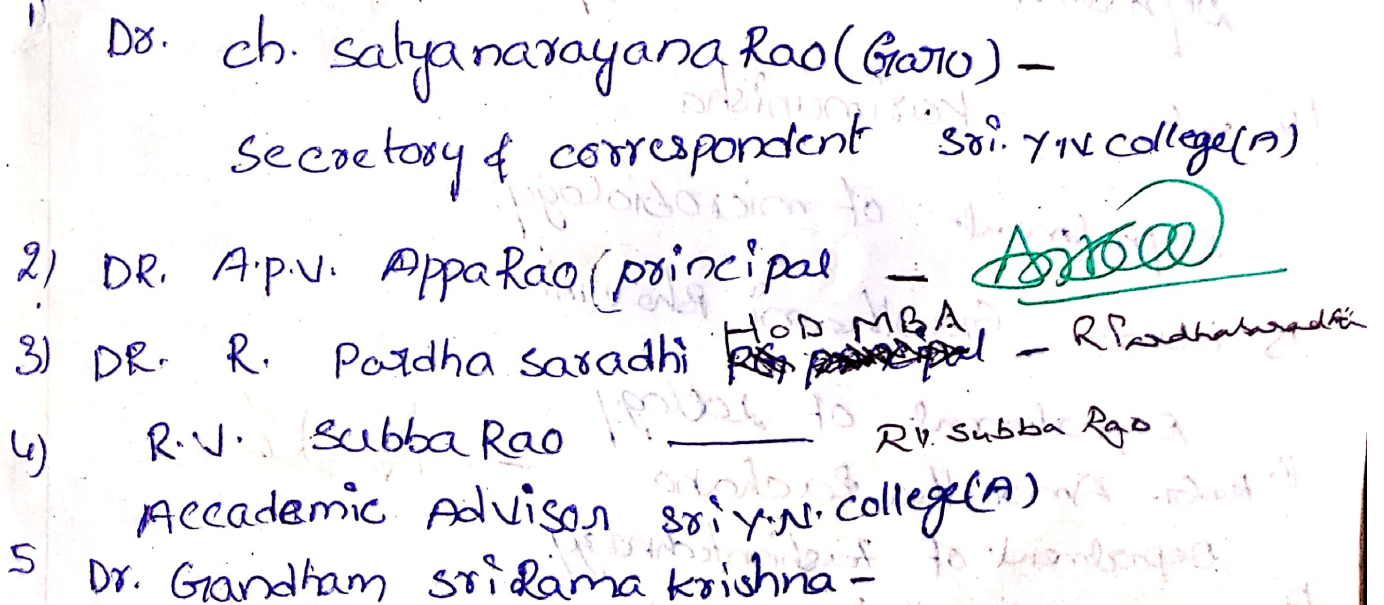 1) Dr. ch. Satyanarayana Rao (Garu) -
Secretory & correspondent Sri. Y.N college(A)
2) DR. A.P.V. AppaRao (principal -
3) DR. R. Pardha Saradhi HOD MBA - R Pardhasaradhi
4) R.V. Subba Rao — R.V. Subba Rao
Accademic Advisor Sri Y.N. College(A)
5 Dr. Gandham Sri Rama Krishna -